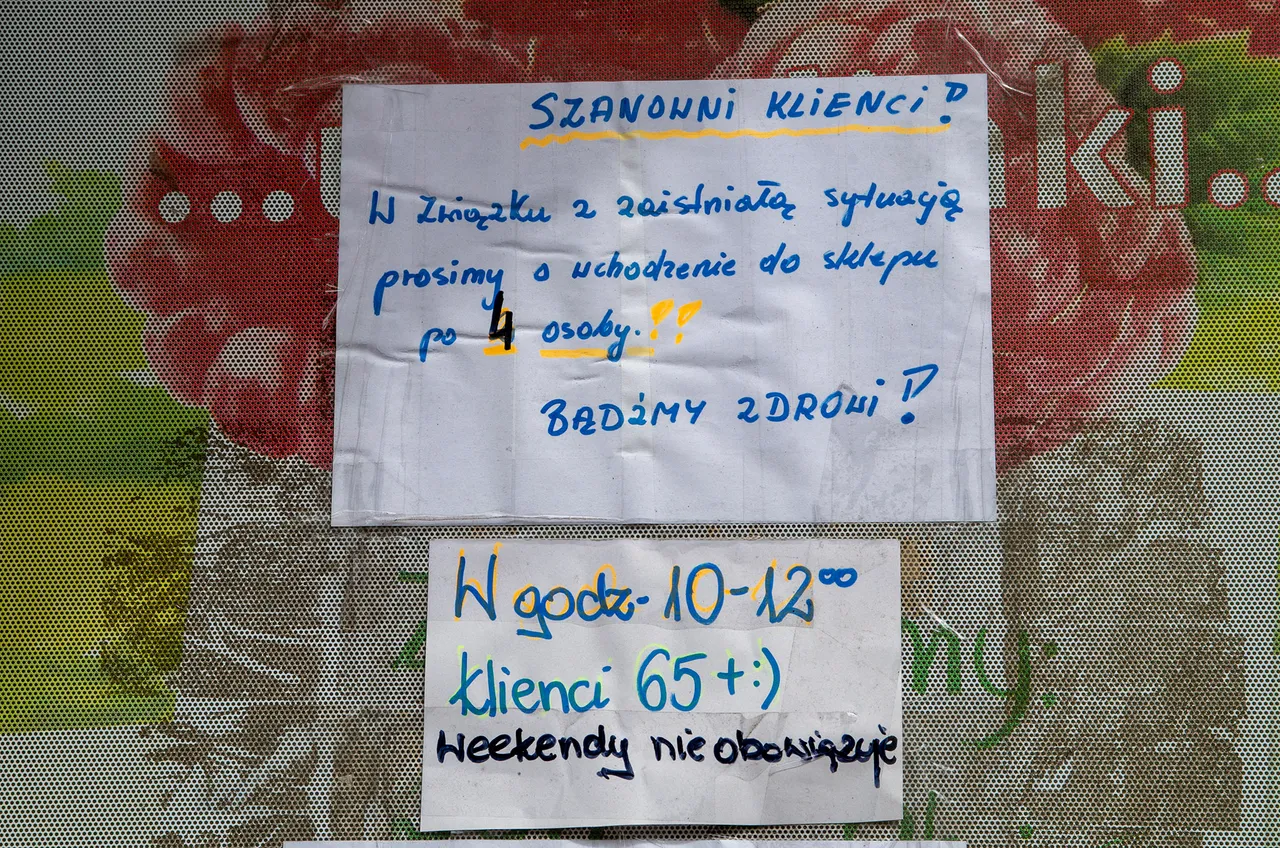 SZANOWNI KLIENCI!
W związku z zaistniałą sytuacją
prosimy o wchodzenie do sklepu
po 4 osoby.!!
BĄDŹMY ZDROWI!
W godz- 10-12⁰⁰
klienci 65+:)
weekendy nie obowiązuje